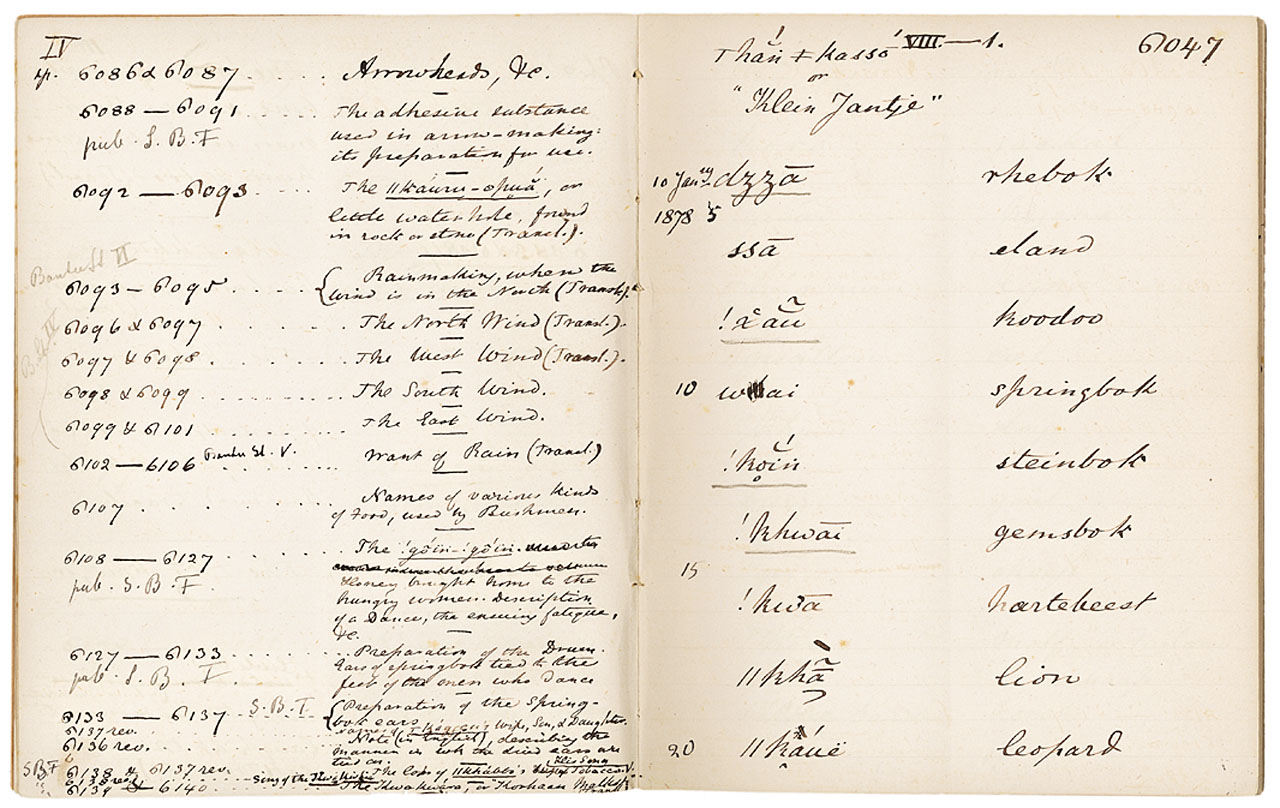 IV
p. 6086 & 6087 ..... Arrowheads, &c.
6088 — 6091 ..... The adhesive substance
pub. S. B. F used in arrow-making:
its preparation for use.
6092 — 6093 .... The ǁkáuru-ǒpuǎ, or
little water hole, found
in rock or stone (Transl.).
Bantu St VI
6093 — 6095 .... { Rainmaking, when the
wind is in the North (Transl.).
B. St. IV
6096 & 6097 ....... The North Wind (Transl.).
6097 & 6098 ....... The West Wind (Transl.).
6098 & 6099 ........ The South Wind.
6099 & 6101 ........ The East Wind.
6102 — 6106 Bantu St. V. ..... Want of Rain (Transl.)
6107 ........ Names of various kinds
of Food, used by Bushmen.
6108 — 6127 ...... The !góïn-!góïn.
pub. S. B. F. Honey brought home to the
hungry women. Description
of a Dance, the ensuing fatigue,
&c.
6127 — 6133 ........ Preparation of the Drum.
pub. S. B. F. Ears of springbok tied to the
feet of the men who dance
6133 — 6137 S.B.F. { Preparation of the Spring-
bok ears.
6137 rev. Wife, Son, & Daughter.
6136 rev. Note (in English), describing the
manner in wh. the dried ears are
tied on.
S.B.F 6138 & 6137 rev. The Loss of ǁkhábbo's Tobacco. V.
6138 rev. Song of the
6139 & 6140 or "Korhaan
ǀhǎń ǂkassó VIII.—1. 6047
or
"Klein Jantje"
10 Jany dzzā rhebok
1878 5
ssā eland
!x̂ãŭ koodoo
10 w ai springbok
!kọ̆ïń steinbok
!khwāi gemsbok
15
!kwā hartebeest
ǁkhã lion
20 ǁkạ́ué leopard